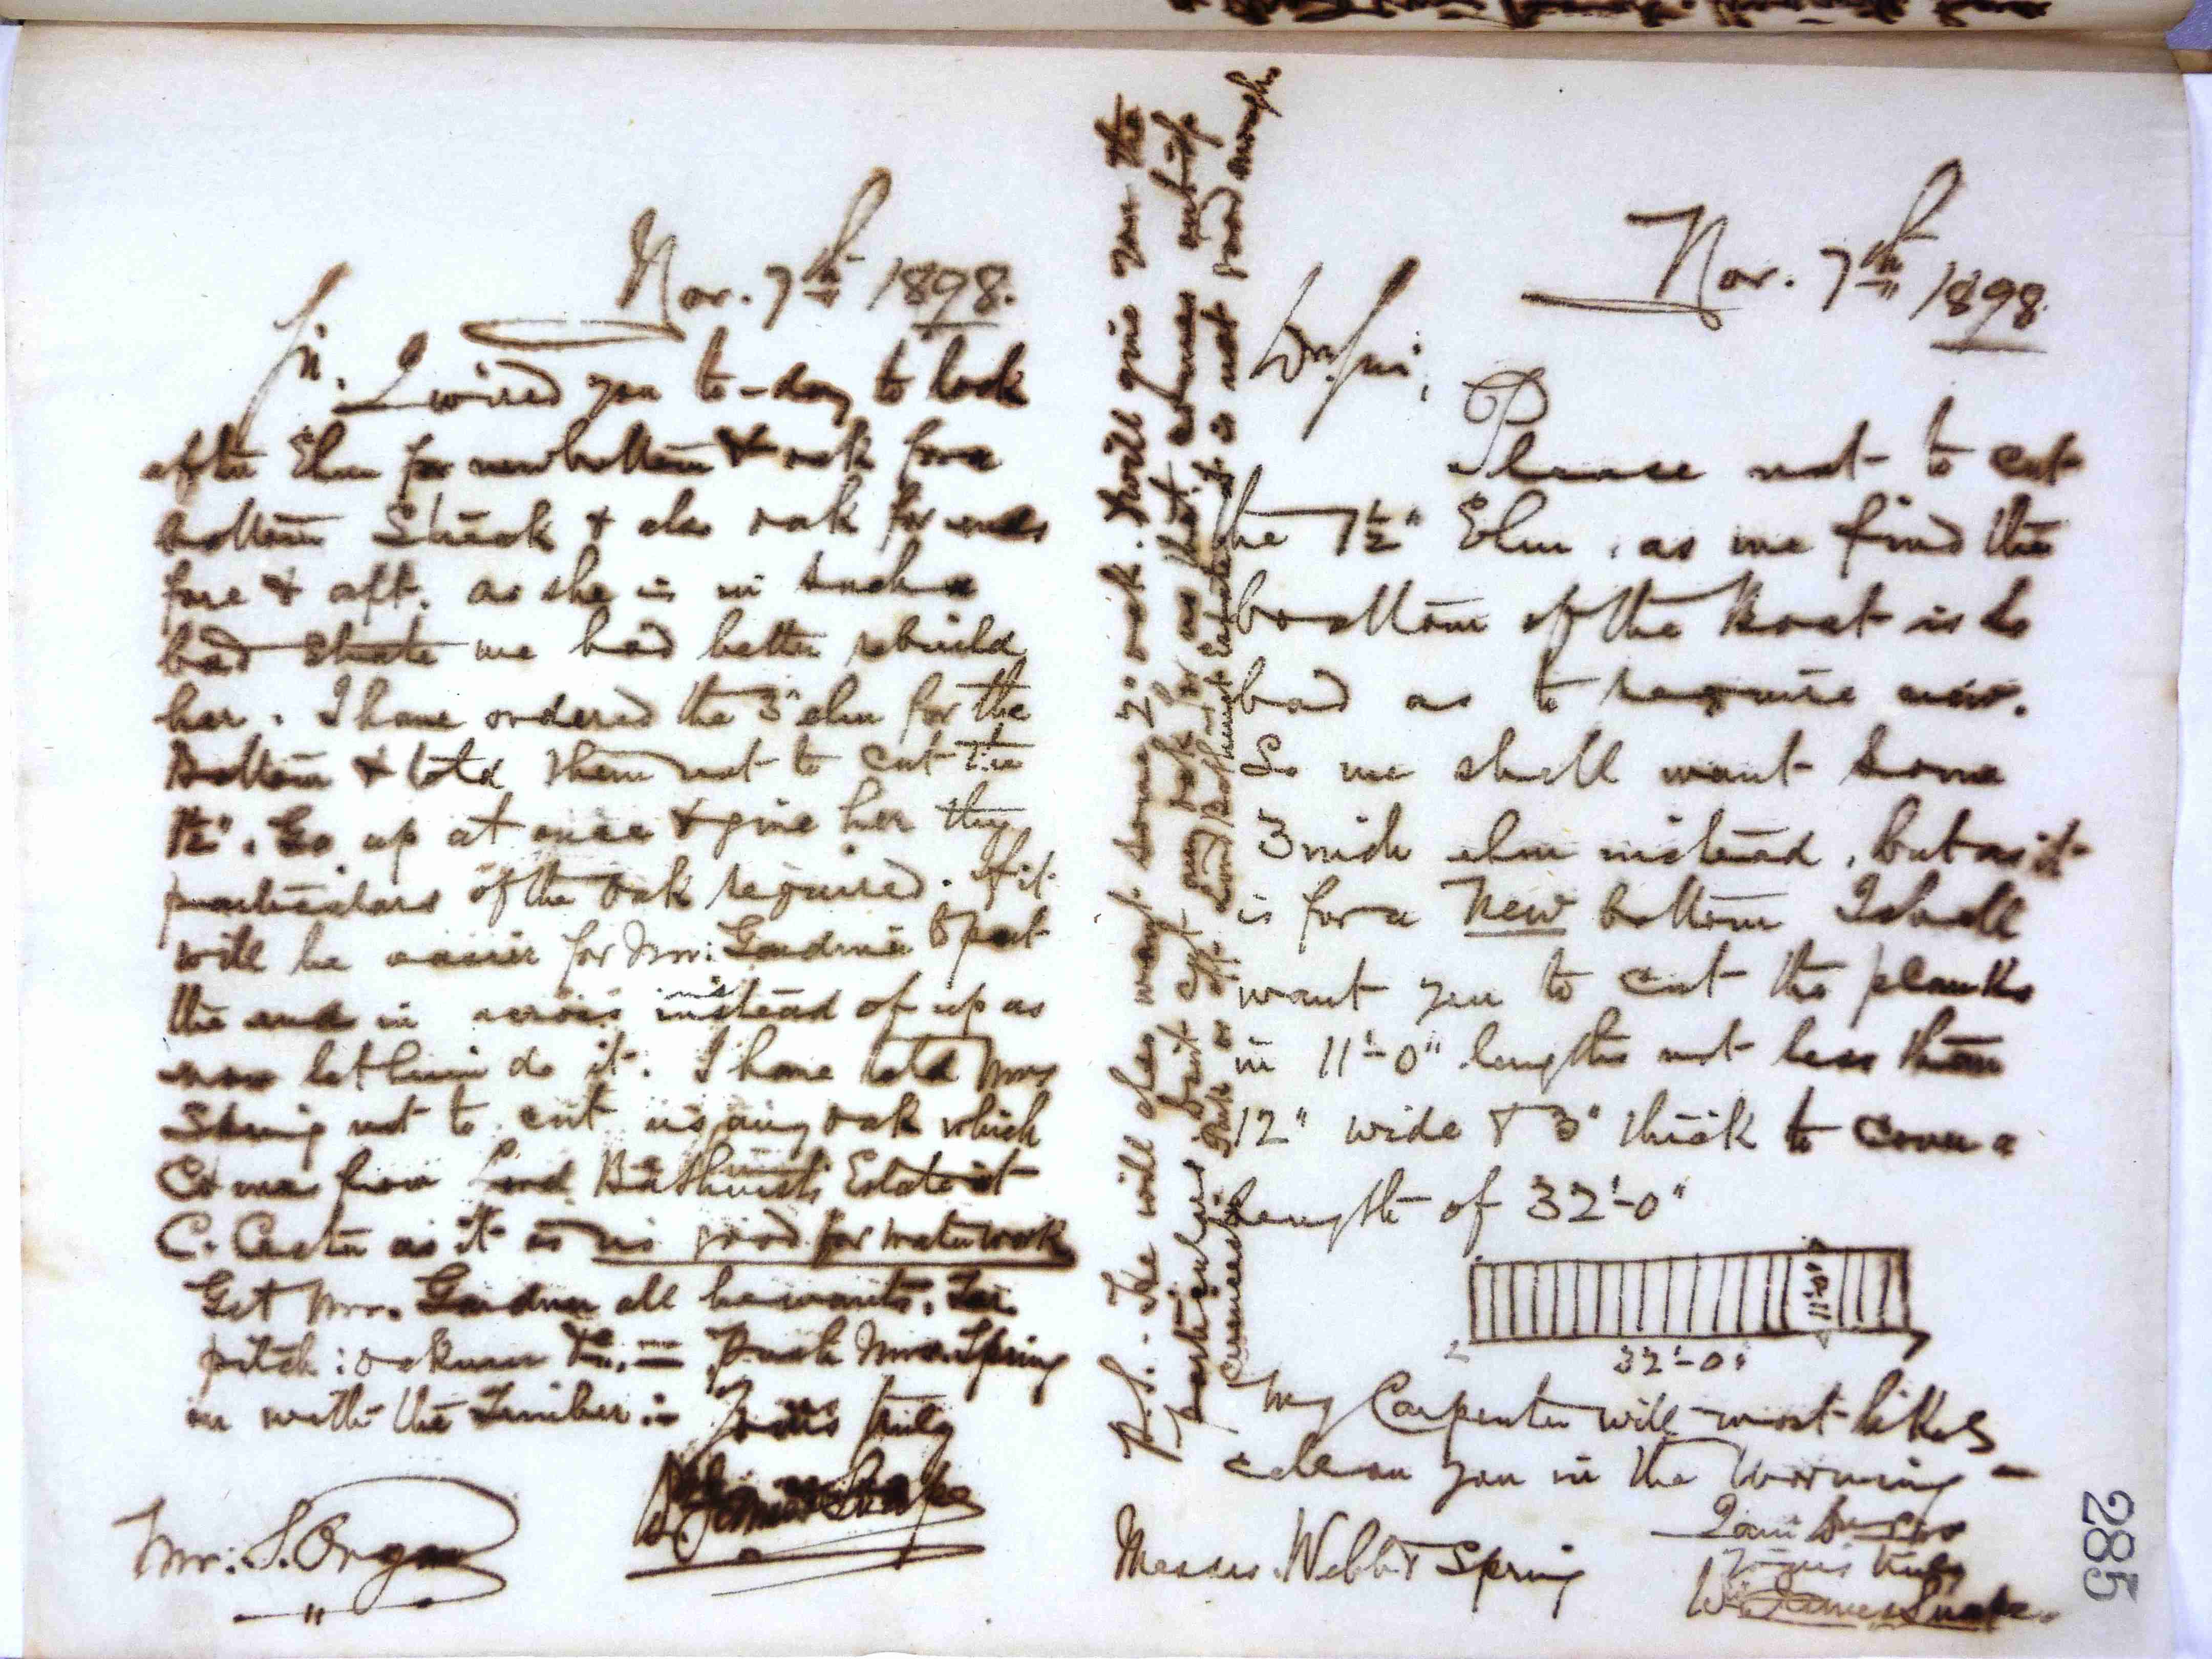 Nov. 7th 1898.
Sir. I wired you to-day to look
after Elm for new bottom & oak for a
bottom Streak & also oak for ends
fore & aft. as she is in such a
bad state we had better rebuild
her. I have ordered the 3" elm for the
Bottom & told them not to cut the
1½". Go up at once & give her the
particulars of the oak required. If it
will be easier for Mr: Gardner to put
the ends in across instead of up as
now let him do it. I have told Mrs
Spring not to cut us any oak which
Comes from Lord Bathurst's Estate at
C. Cester as it is no good for water work
Get Mr. Gardner all he wants. Tar
pitch: ockum &c. — Push Mrs. Spring
on with the Timber :- Yours truly
Wm James Snape
Mr: S. Organ
Nov. 7th 1898.
Dr. Sir;
Please not to cut
the 1½" Elm, as we find the
bottom of the Boat is so
bad as to require new.
So we shall want some
3 inch elm instead, but as it
is for a New bottom I shall
want you to cut the planks
in 11'-0" lengths not less than
12" wide & 3" thick to cover a
length of 32'-0"
11'-0"
32'-0"
My Carpenter will most likely
call on you in the morning —
I am Dr Sirs
Yours truly
Wm James Snape.
Messrs. Webb & Spring
P.S. – We will also want some 2" oak. & will give you the
particulars. But don't cut any oak for us that comes out of
the park or off Lord Bathurst's Estate at
Cirencester it is not good enough.
285